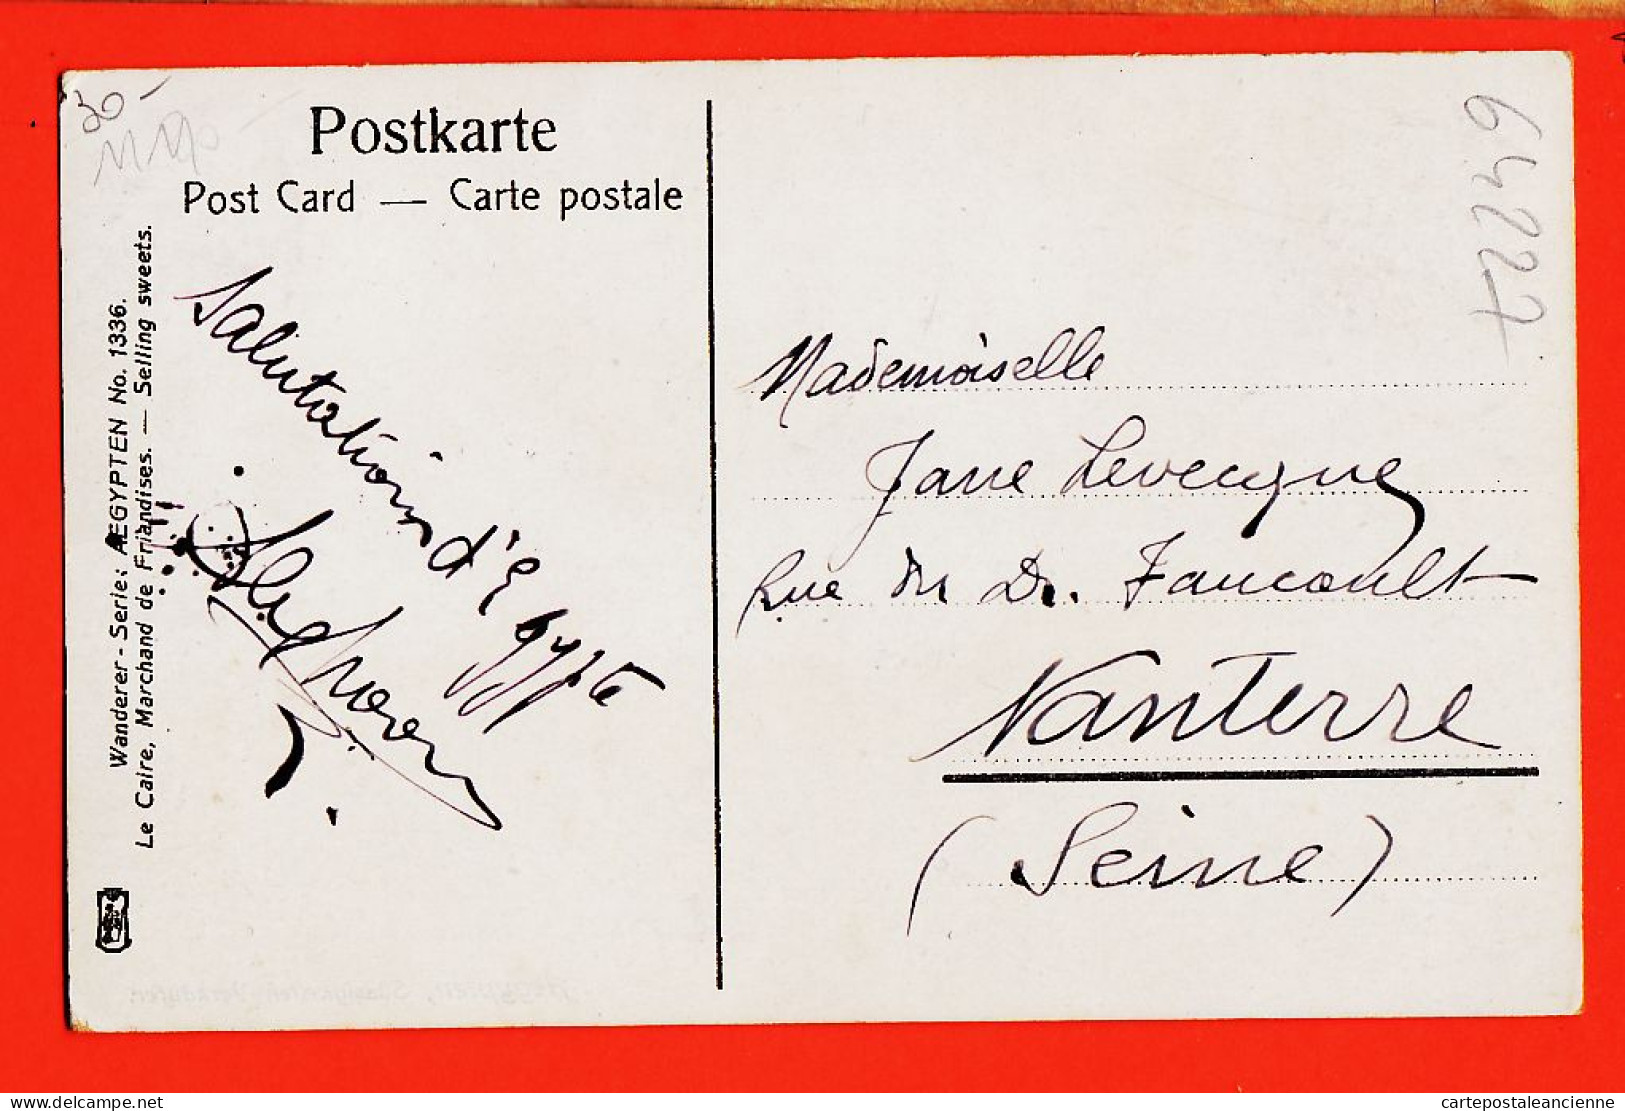 30-
Postkarte
Post Card — Carte postale
64227
Wanderer - Serie: AEGYPTEN No. 1336.
Le Caire, Marchand de Friandises. — Selling sweets.
Salutations d'Egypte
Mademoiselle
Jane Levecque
Rue du Dr. Foucault
Nanterre
(Seine)
delcampe.net
cartepostaleancienne